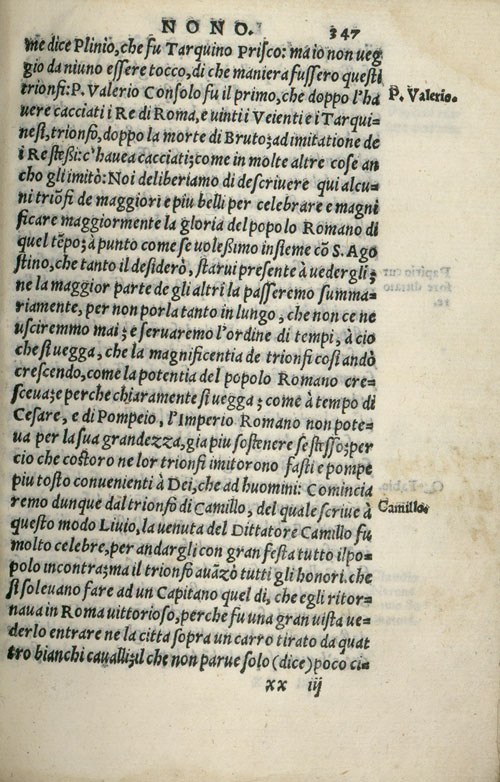 NONO. 347
me dice Plinio, che fu Tarquino Prisco: ma io non ueg
gio da niuno essere tocco, di che maniera fussero questi
trionfi: P. Valerio Consolo fu il primo, che doppo l'ha
P. Valerio.
uere cacciati i Re di Roma, e uinti i Veienti e i Tarqui-
nesi, trionfò, doppo la morte di Bruto; ad imitatione de
i Re stessi: c'hauea cacciati; come in molte altre cose an
cho gli imitò: Noi deliberiamo di descriuere qui alcu-
ni triõfi de maggiori e piu belli per celebrare e magni
ficare maggiormente la gloria del popolo Romano di
quel tẽpo; à punto come se uolessimo insieme cõ S. Ago
stino, che tanto il desiderò, starui presente à uedergli;
ne la maggior parte de gli altri la passeremo summa-
riamente, per non porla tanto in lungo, che non ce ne
usciremmo mai; e seruaremo l'ordine di tempi, à cio
che si uegga, che la magnificentia de trionfi cosi andò
crescendo, come la potentia del popolo Romano cre-
sceua; e perche chiaramente si uegga; come à tempo di
Cesare, e di Pompeio, l'Imperio Romano non pote-
ua per la sua grandezza, gia piu sostenere se stesso; per
cio che costoro ne lor trionfi imitorono fasti e pompe
piu tosto conuenienti à Dei, che ad huomini: Comincia
remo dunque dal trionfo di Camillo, del quale scriue à
Camillo.
questo modo Liuio, la uenuta del Dittatore Camillo fu
molto celebre, per andargli con gran festa tutto il po-
polo incontra; ma il trionfo auãzò tutti gli honori. che
si soleuano fare ad un Capitano quel di, che egli ritor-
naua in Roma uittorioso, perche fu una gran uista ue-
derlo entrare ne la citta sopra un carro tirato da quat
tro bianchi caualli; il che non parue solo (dice) poco ci-
xx iij